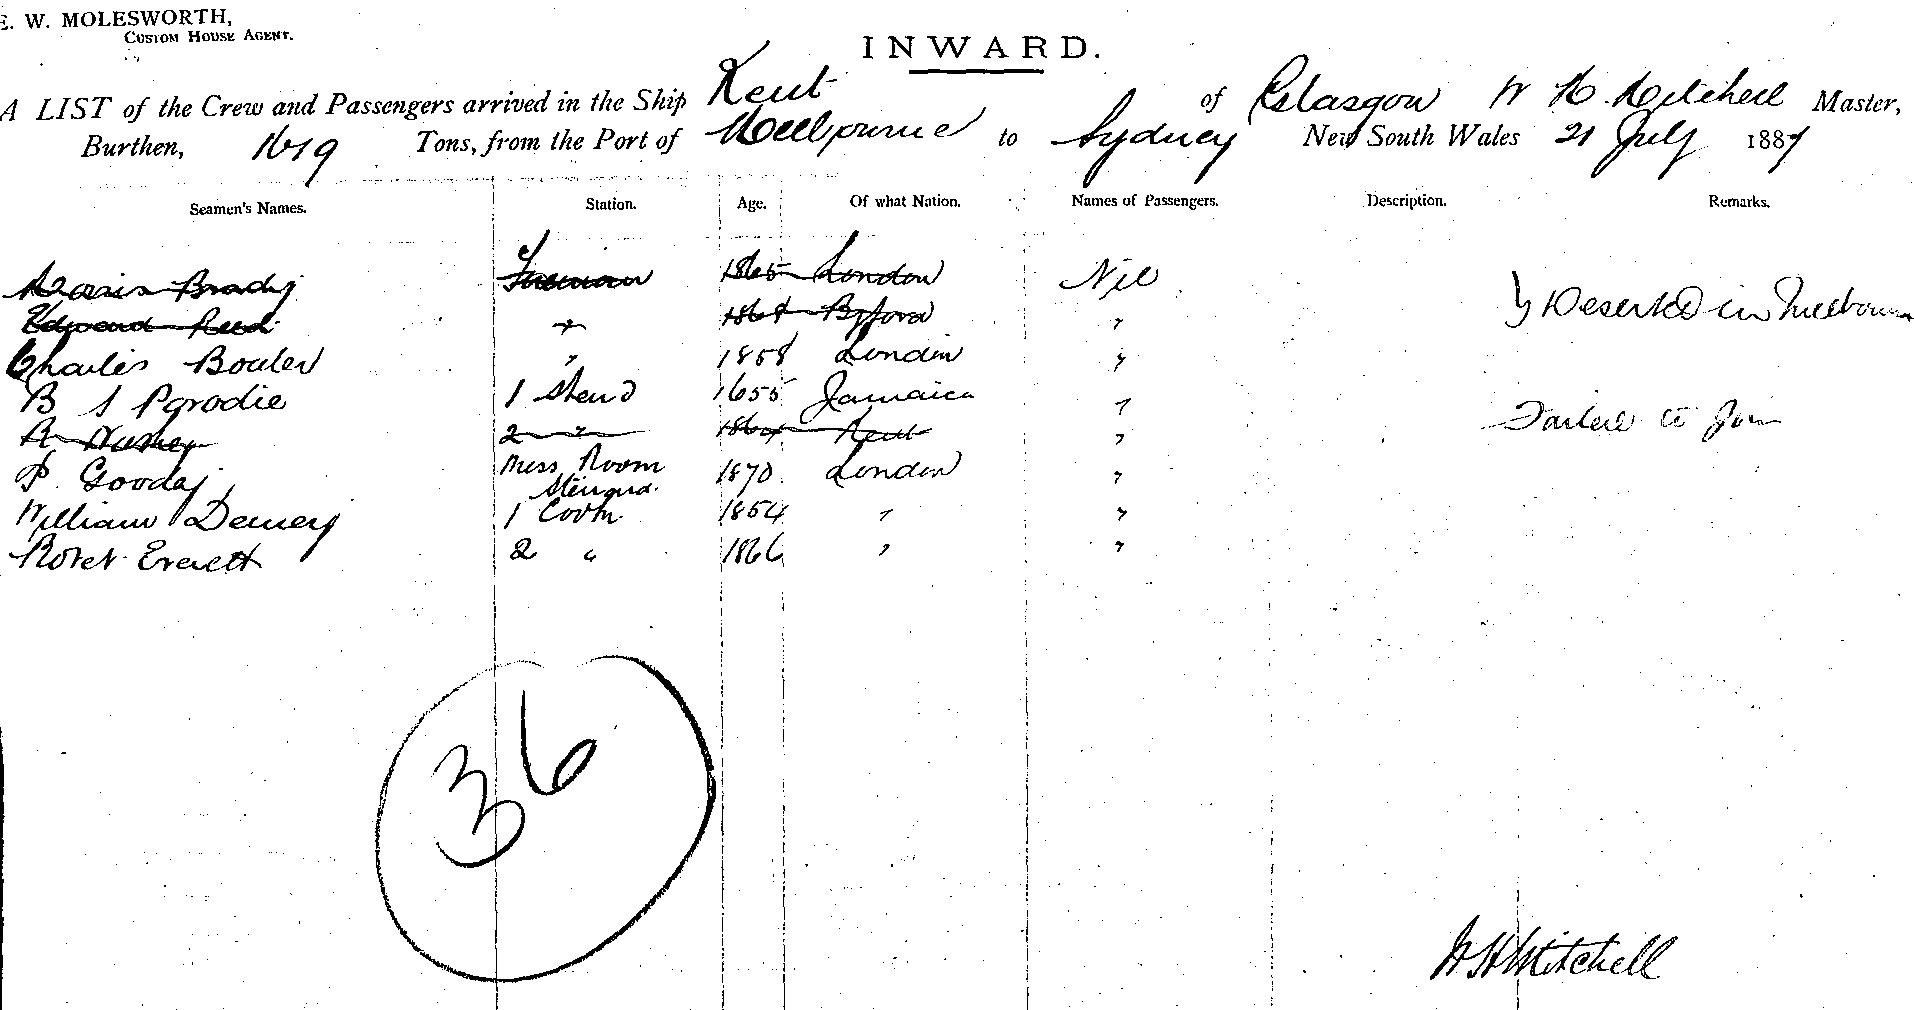 E. W. MOLESWORTH,
CUSTOM HOUSE AGENT.
INWARD.
A LIST of the Crew and Passengers arrived in the Ship Kent of Glasgow W H Mitchell Master,
Burthen, 1619 Tons, from the Port of Melbourne to Sydney New South Wales 21 July 1887
Seamen's Names. Station. Age. Of what Nation. Names of Passengers. Description. Remarks.
Morris Brady Fireman 1865 London Nil
Edward Reed " 1868 " } Deserted in Melbourne
Charles Bouler " 1858 London "
B S Parodie 1 Stewd 1855 Jamaica "
A 2 " 1864 Kent " Failed to Join
P. Gooday Mess Room 1870 London "
Steward.
William Demery 1 Cook 1854 " "
Robt Everett 2 " 1866 " "
36
W H Mitchell